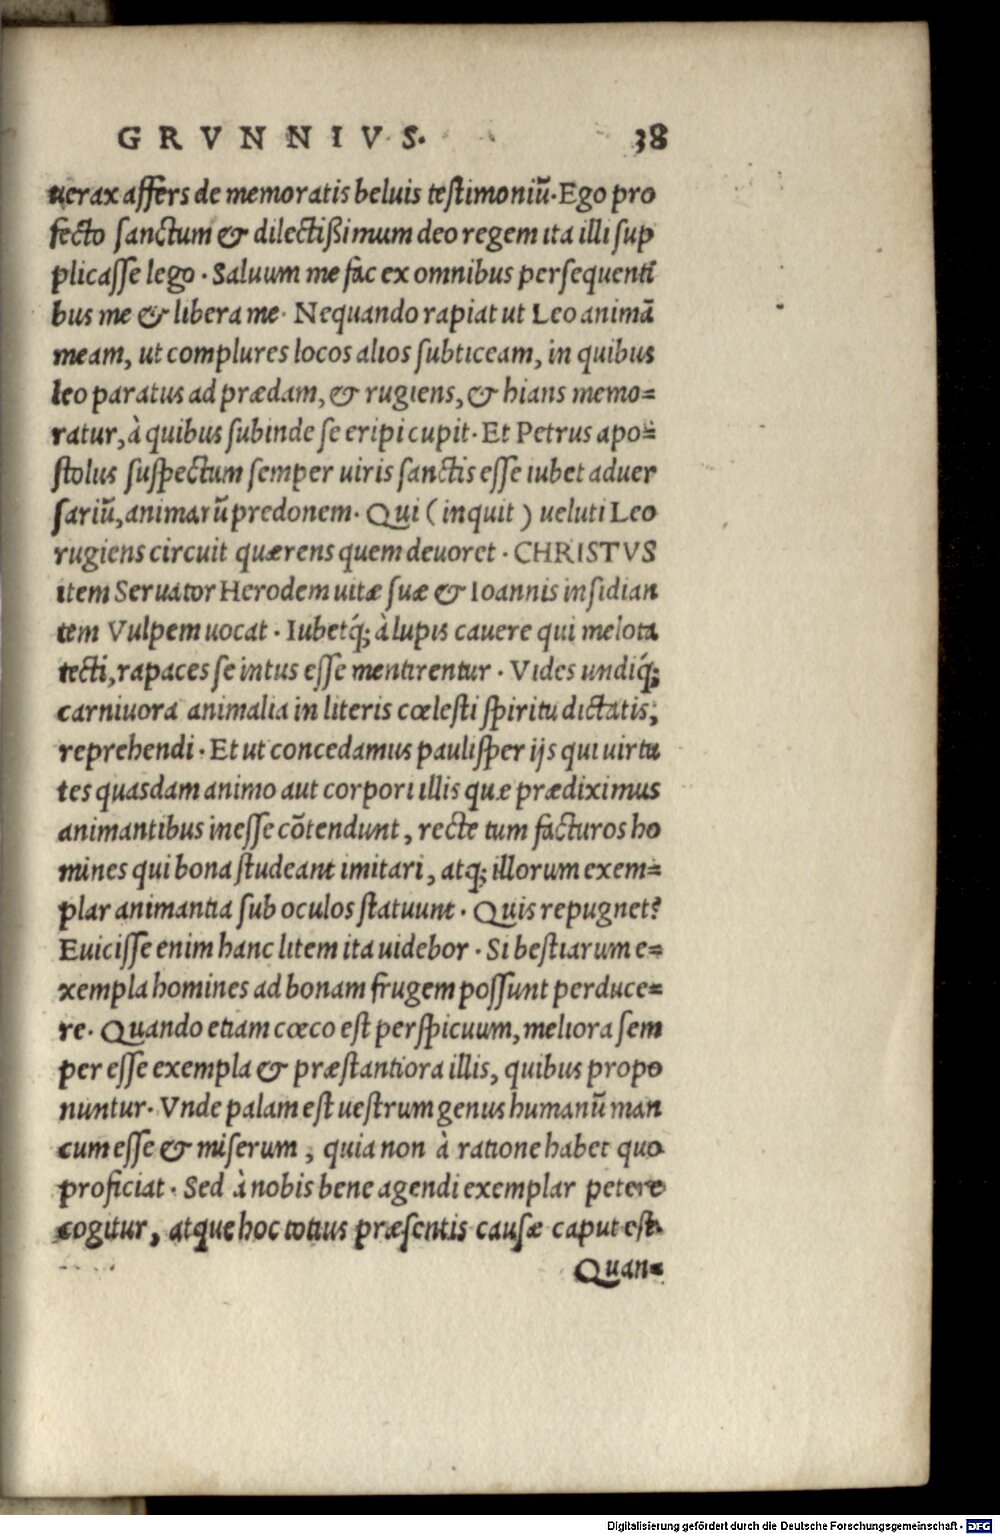 GRVNNIVS. 38
uerax affers de memoratis beluis testimoniū. Ego pro
fecto sanctum & dilectißimum deo regem ita illi sup
plicasse lego. Saluum me fac ex omnibus persequenti
bus me & libera me. Nequando rapiat ut Leo animā
meam, ut complures locos alios subticeam, in quibus
leo paratus ad prædam, & rugiens, & hians memo=
ratur, à quibus subinde se eripi cupit. Et Petrus apo=
stolus suspectum semper uiris sanctis esse iubet aduer
sariū, animarū predonem. Qui (inquit) ueluti Leo
rugiens circuit quærens quem deuoret. CHRISTVS
item Seruator Herodem uitæ suæ & Ioannis insidian
tem Vulpem uocat. Iubetq́; à lupis cauere qui melota
tecti, rapaces se intus esse mentirentur. Vides undiq́;
carniuora animalia in literis cœlesti spiritu dictatis,
reprehendi. Et ut concedamus paulisper ijs qui uirtu
tes quasdam animo aut corpori illis quæ prædiximus
animantibus inesse cōtendunt, recte tum facturos ho
mines qui bona studeant imitari, atq; illorum exem=
plar animantia sub oculos statuunt. Quis repugnet?
Euicisse enim hanc litem ita uidebor. Si bestiarum e=
xempla homines ad bonam frugem possunt perduce=
re. Quando etiam cœco est perspicuum, meliora sem
per esse exempla & præstantiora illis, quibus propo
nuntur. Vnde palam est uestrum genus humanū man
cum esse & miserum, quia non à ratione habet quo
proficiat. Sed à nobis bene agendi exemplar petere
cogitur, atque hoc totius præsentis causæ caput est.
Quan=
Digitalisierung gefördert durch die Deutsche Forschungsgemeinschaft - DFG